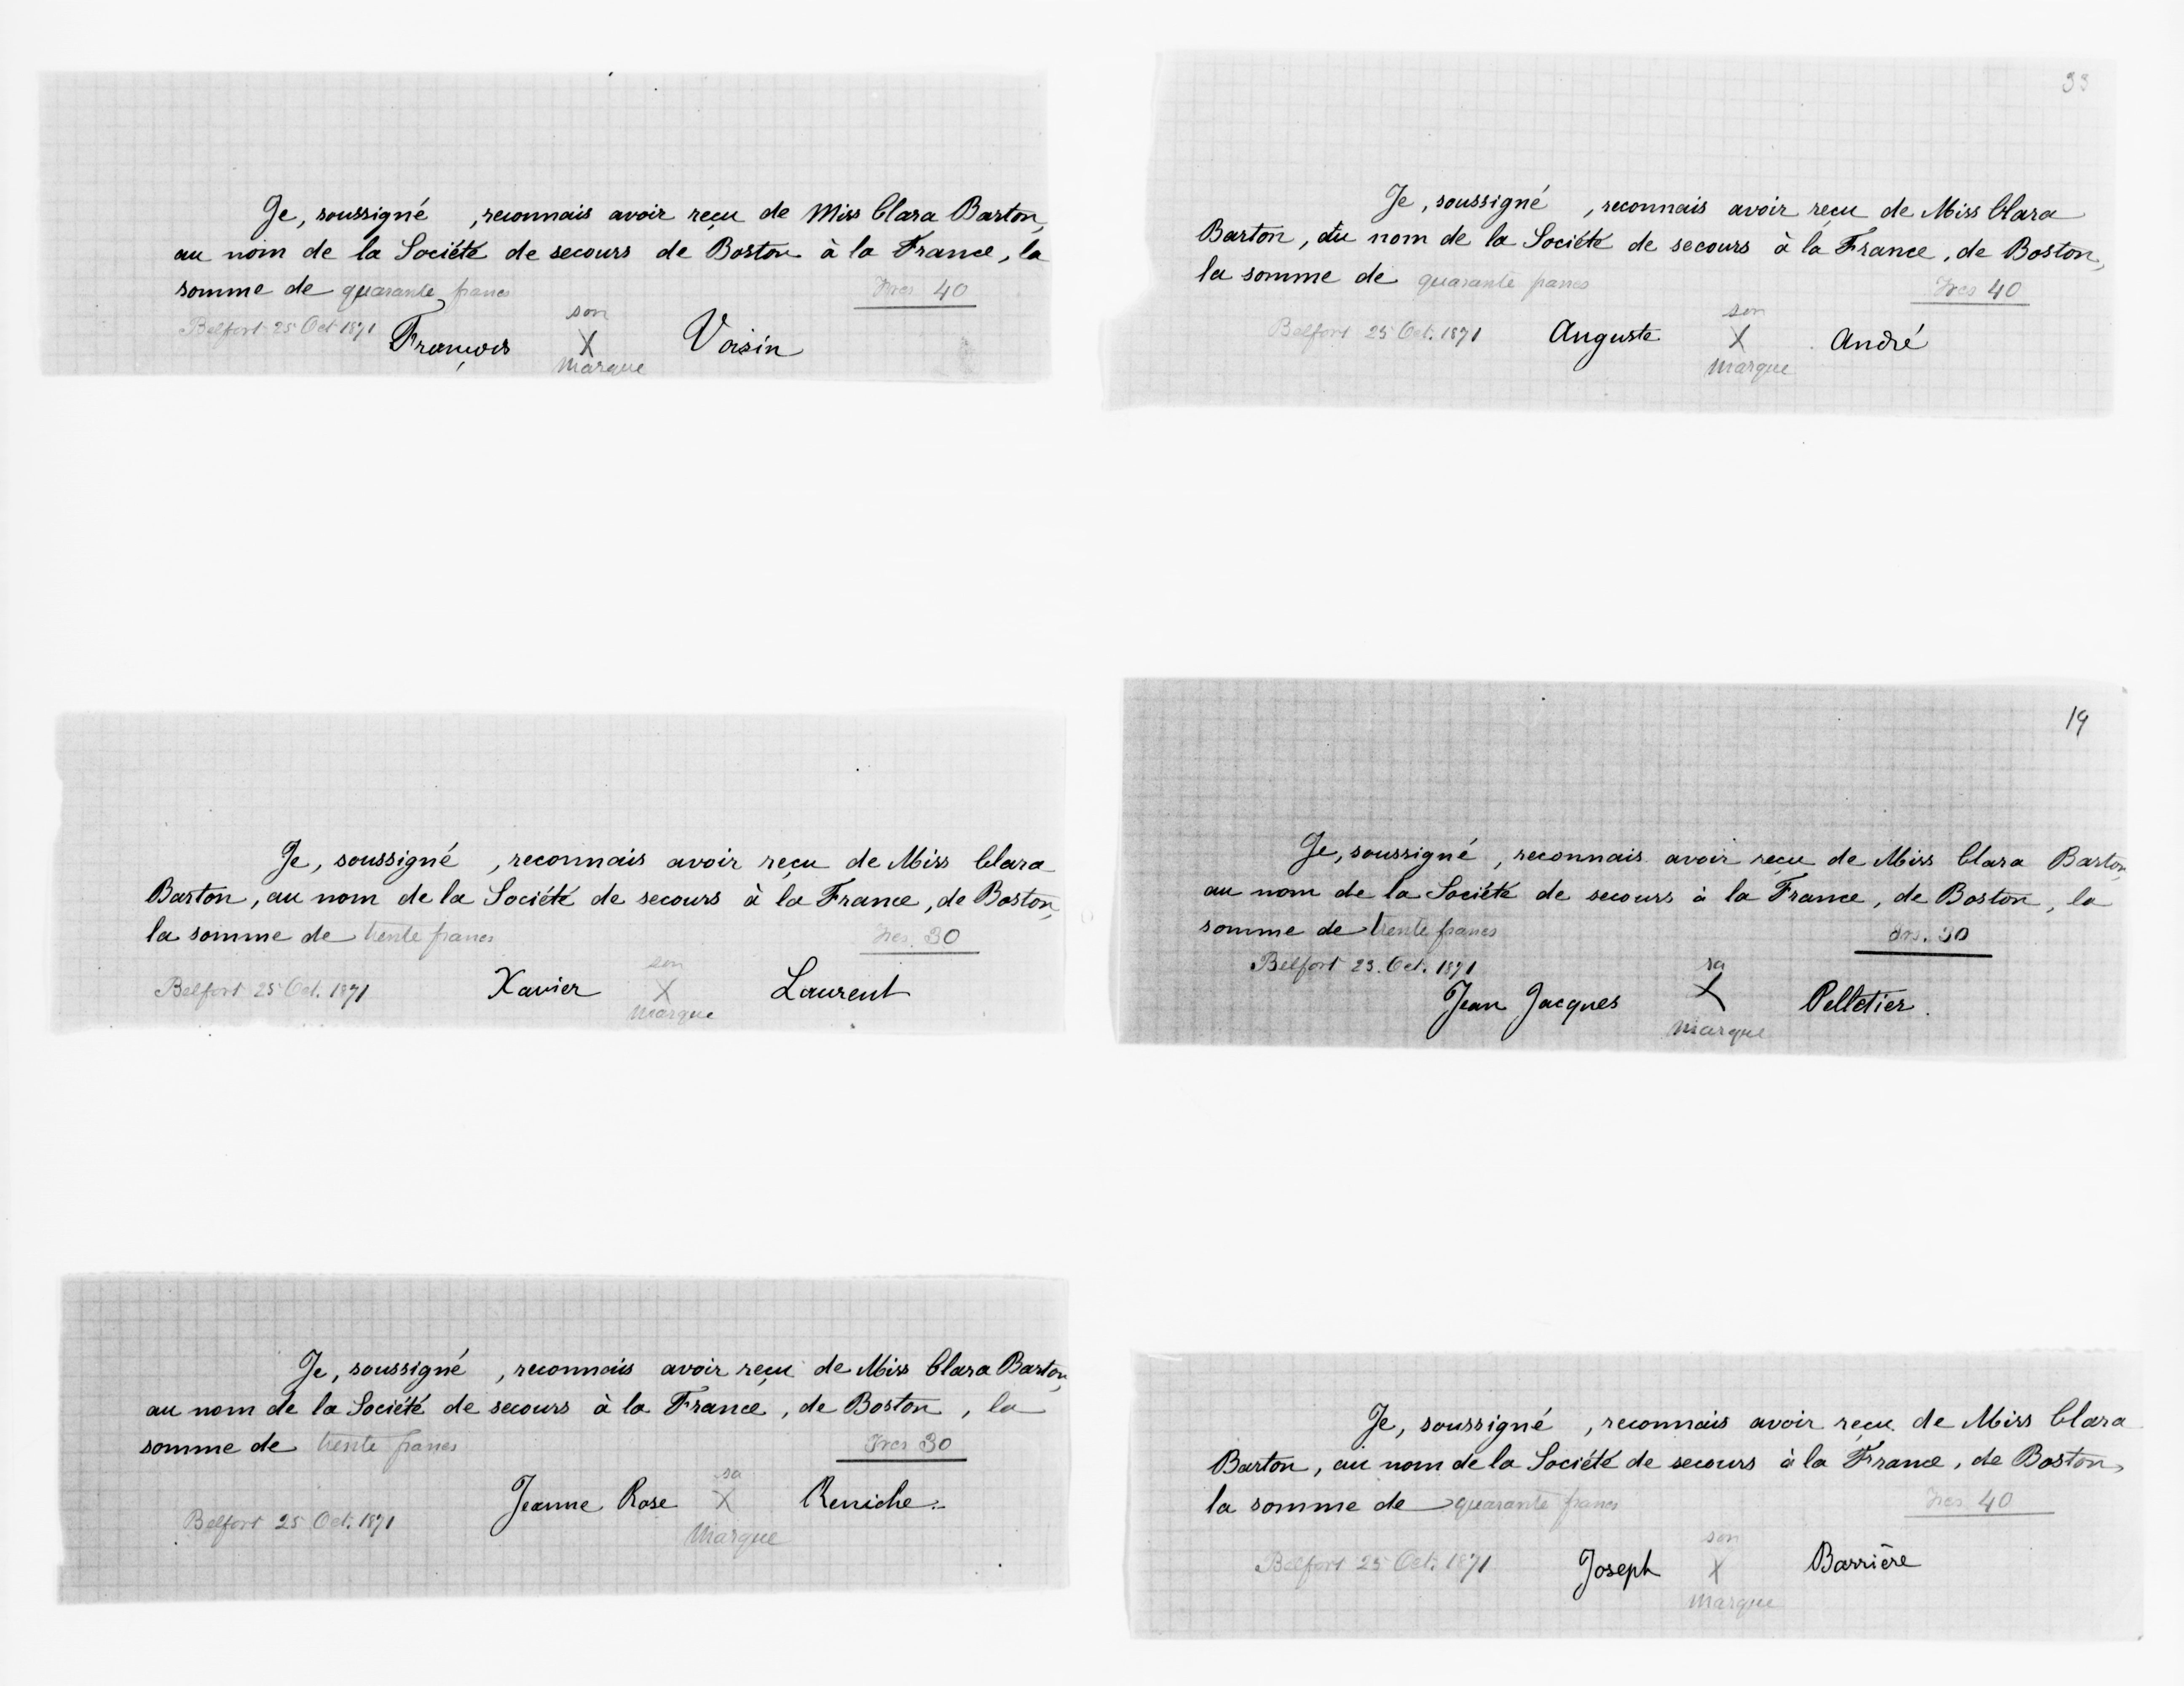 Je, soussigné , reconnais avoir reçu de Miss Clara Barton,
au nom de la Société de secours de Boston à la France, la
somme de quarante francs
Frcs 40
son
Belfort 25 Oct 1871 François X Voisin
Marque
33
Je, soussigné , reconnais avoir reçu de Miss Clara
Barton, au nom de la Société de secours à la France, de Boston,
la somme de quarante francs
Frcs 40
son
Belfort 25 Oct. 1871 Auguste X André
Marque
Je, soussigné , reconnais avoir reçu de Miss Clara
Barton, au nom de la Société de secours à la France, de Boston,
la somme de trente francs
Frcs. 30
son
Belfort 25 Oct. 1871 Xavier X Laurent
Marque
19
Je, soussigné , reconnais avoir reçu de Miss Clara Barton,
au nom de la Société de secours à la France, de Boston, la
somme de trente francs
Frs. 30
Belfort 25. Oct. 1871
sa
Jean Jacques X Pelletier.
Marque
Je, soussigné , reconnais avoir reçu de Miss Clara Barton,
au nom de la Société de secours à la France, de Boston, la
somme de trente francs
Frcs 30
sa
Jeanne Rose X Reniche.
Belfort 25 Oct. 1871
Marque
Je, soussigné , reconnais avoir reçu de Miss Clara
Barton, au nom de la Société de secours à la France, de Boston,
la somme de quarante francs
Frcs 40
son
Belfort 25 Oct. 1871 Joseph X Barrière
Marque